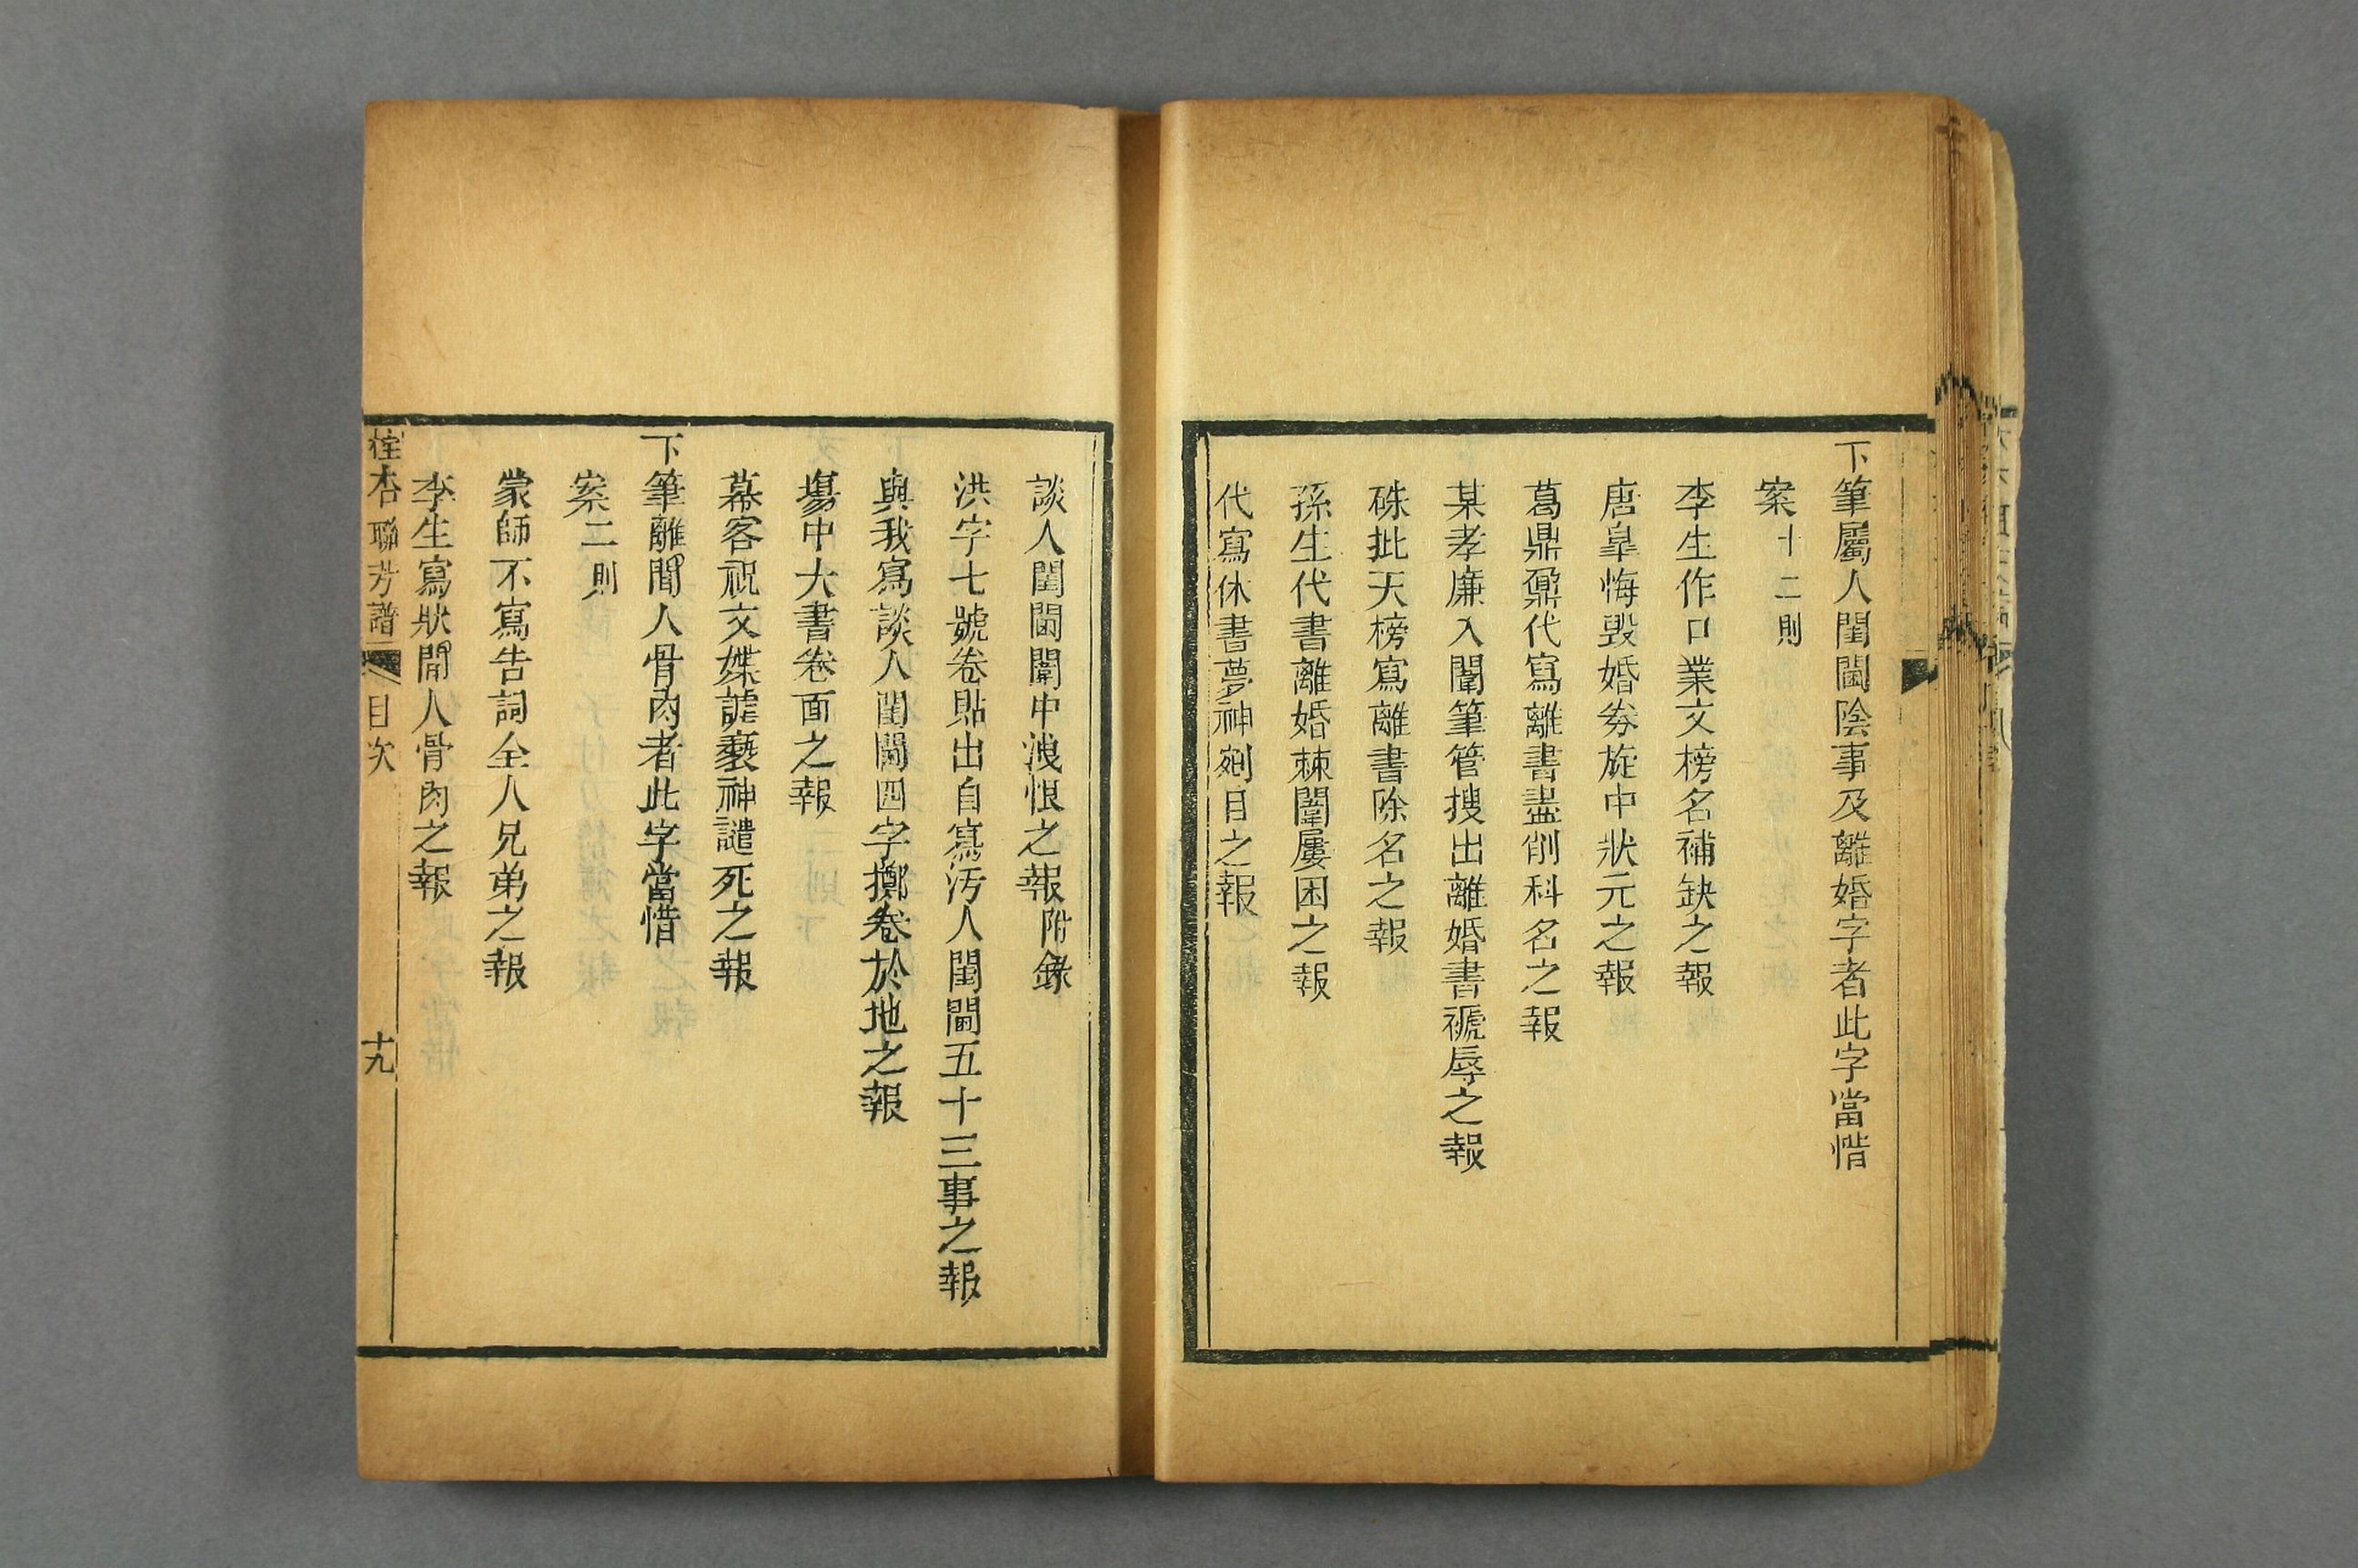 下筆屬人閨閫陰事及離婚字者此字當惜
案十二則
李生作口業文榜名補缺之報
唐皐悔毀婚券旋中狀元之報
葛鼎鼐代寫離書盡削科名之報
某孝廉入闈筆管搜出離婚書褫辱之報
硃批天榜寫離書除名之報
孫生代書離婚棘闈屢困之報
代寫休書夢神剜目之報
談人閨閫闈中洩恨之報附錄
洪字七號卷貼出自寫汚人閨閫五十三事之報
與我寫談人閨閫四字擲卷於地之報
塲中大書卷面之報
幕客祝文媟謔褻神譴死之報
下筆離間人骨肉者此字當惜
案二則
蒙師不寫告詞全人兄弟之報
李生寫狀間人骨肉之報
桂杏聯芳譜 目次 十九